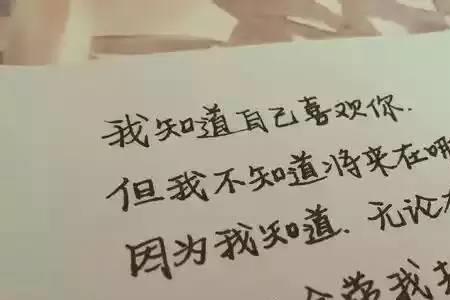 我知道自己喜欢你.
但我不知道将来在哪
因为我知道.无论
会带我